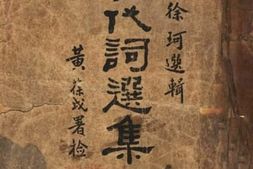 徐珂選輯
代詞選集
黃葆戉署檢